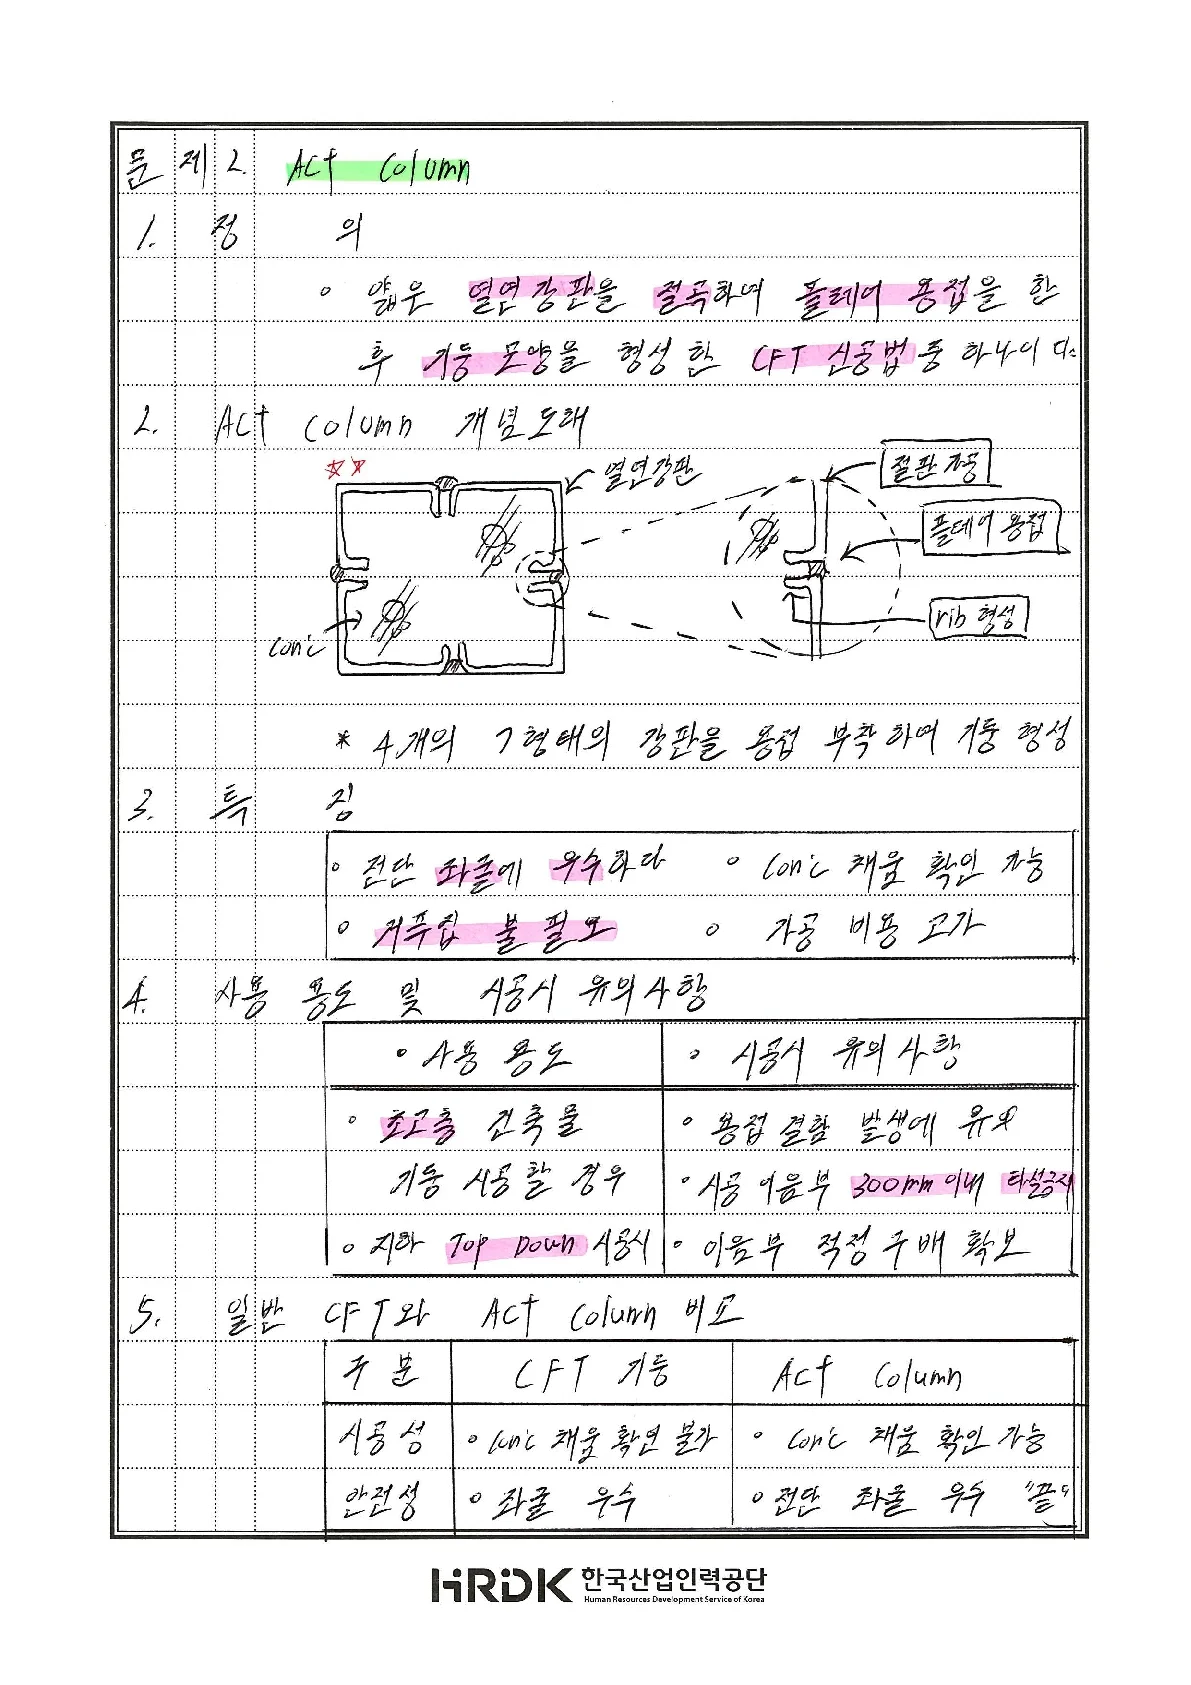 문 제 2. ACT Column
1. 정 의
◦ 얇은 열연강판을 절곡하여 플레어 용접을 한
후 기둥 모양을 형성한 CFT 신공법 중 하나이다.
2. ACT Column 개념도해
☆☆
열연강판
절판가공
플레어 용접
rib 형성
con'c
* 4개의 ㄱ형태의 강판을 용접 부착하여 기둥 형성
3. 특 징
◦ 전단 좌굴에 우수하다 ◦ Con'c 채움 확인 가능
◦ 거푸집 불필요 ◦ 가공 비용 고가
4. 사용 용도 및 시공시 유의사항
◦ 사용 용도 ◦ 시공시 유의사항
◦ 초고층 건축물 ◦ 용접 결함 발생에 유의
기둥 시공할 경우 ◦ 시공 이음부 300mm 이내 타설금지
◦ 지하 Top Down 시공시 ◦ 이음부 적정 구배 확보
5. 일반 CFT와 ACT Column 비교
구 분 CFT 기둥 ACT Column
시공성 ◦ con'c 채움 확인 불가 ◦ con'c 채움 확인 가능
안전성 ◦ 좌굴 우수 ◦ 전단 좌굴 우수 "끝"
HRDK 한국산업인력공단
Human Resources Development Service of Korea